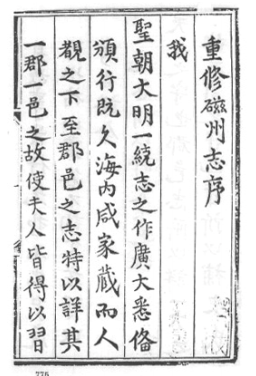 重修磁州志序
我
聖朝大明一統志之作廣大悉俻
頒行既久海内咸家藏而人
覩之下至郡邑之志特以詳其
一郡一邑之故使夫人皆得以習
776